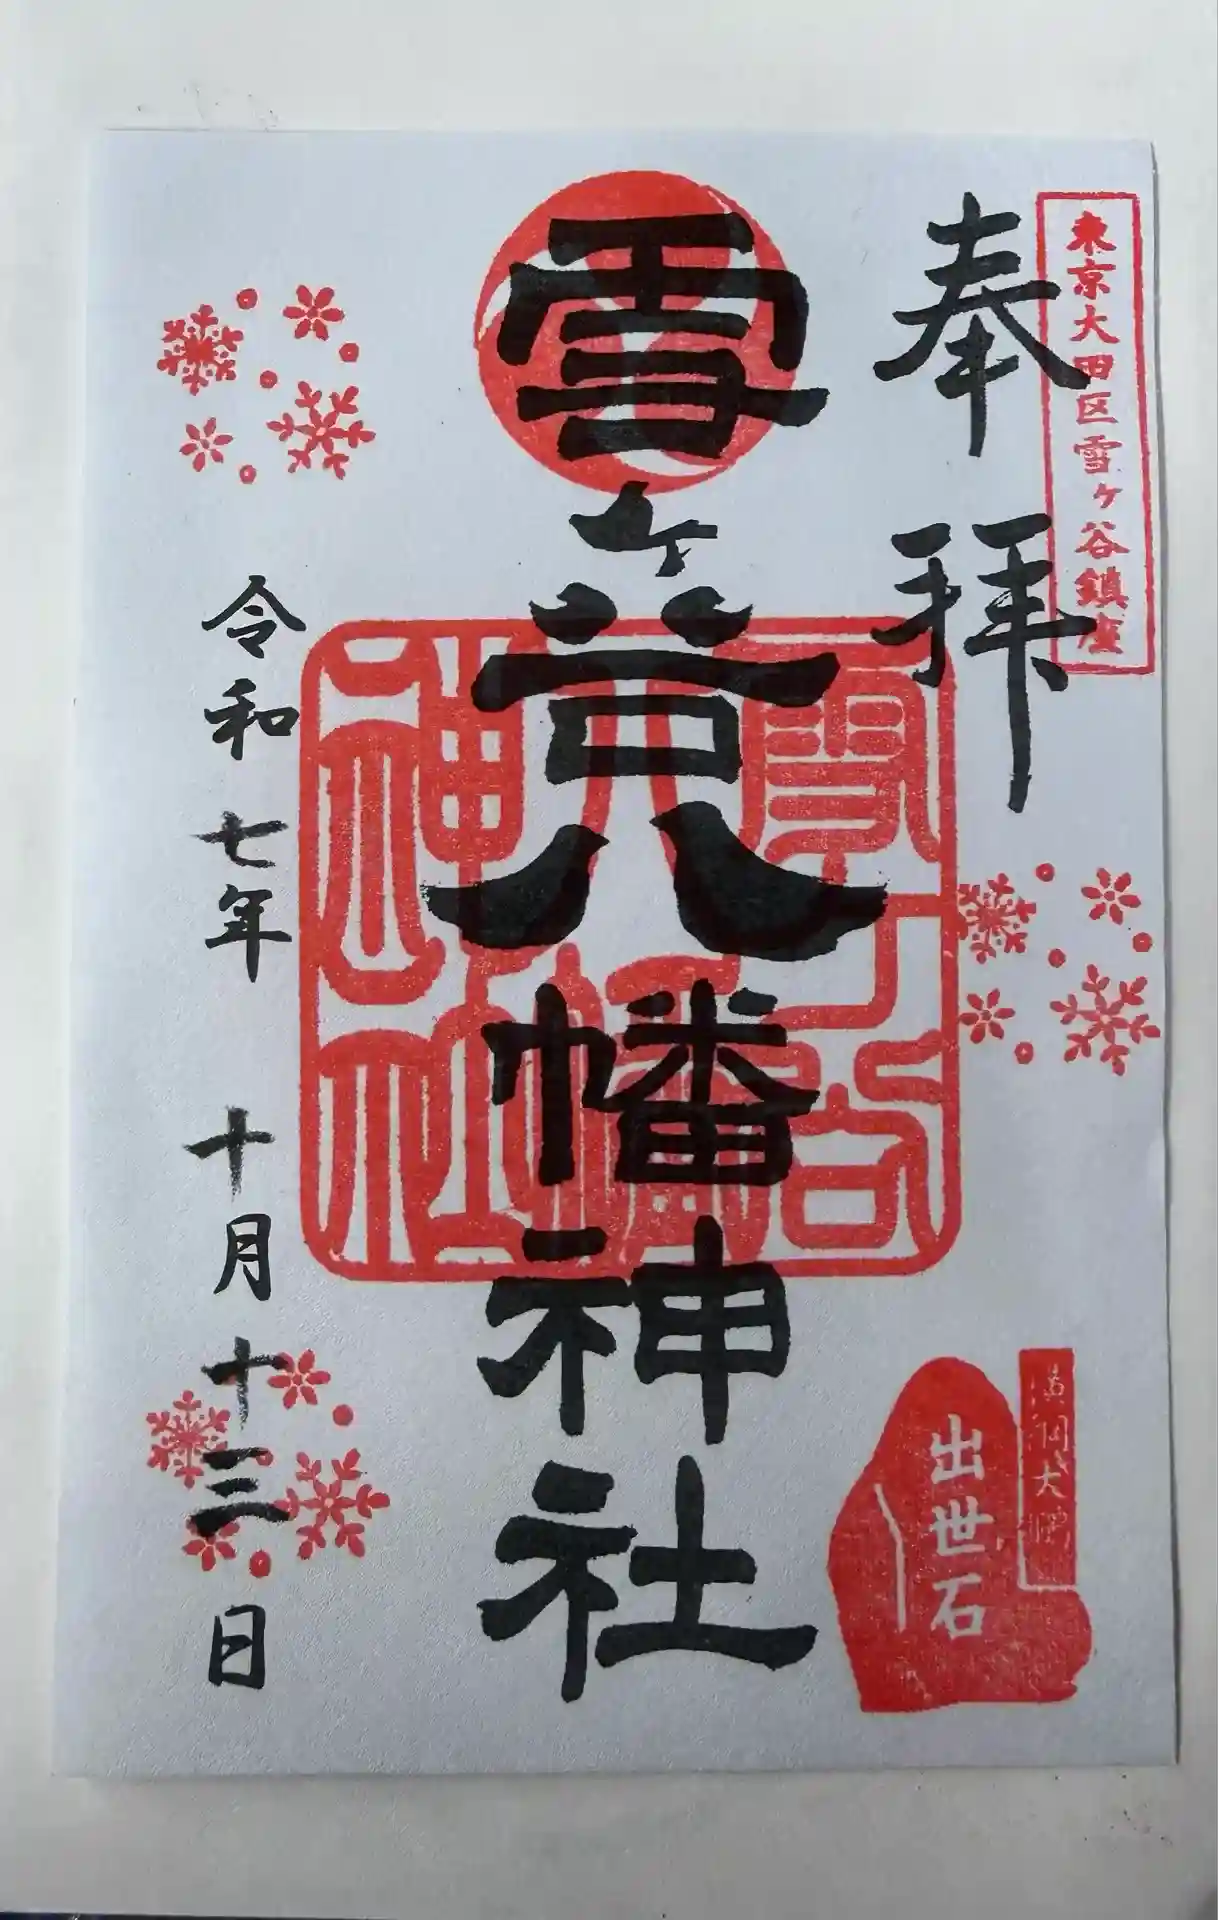 東京大田区雪ヶ谷鎮座
奉拝
雪ヶ谷八幡神社
雪ヶ谷
八幡
神社
出世石
令和七年 十月十三日